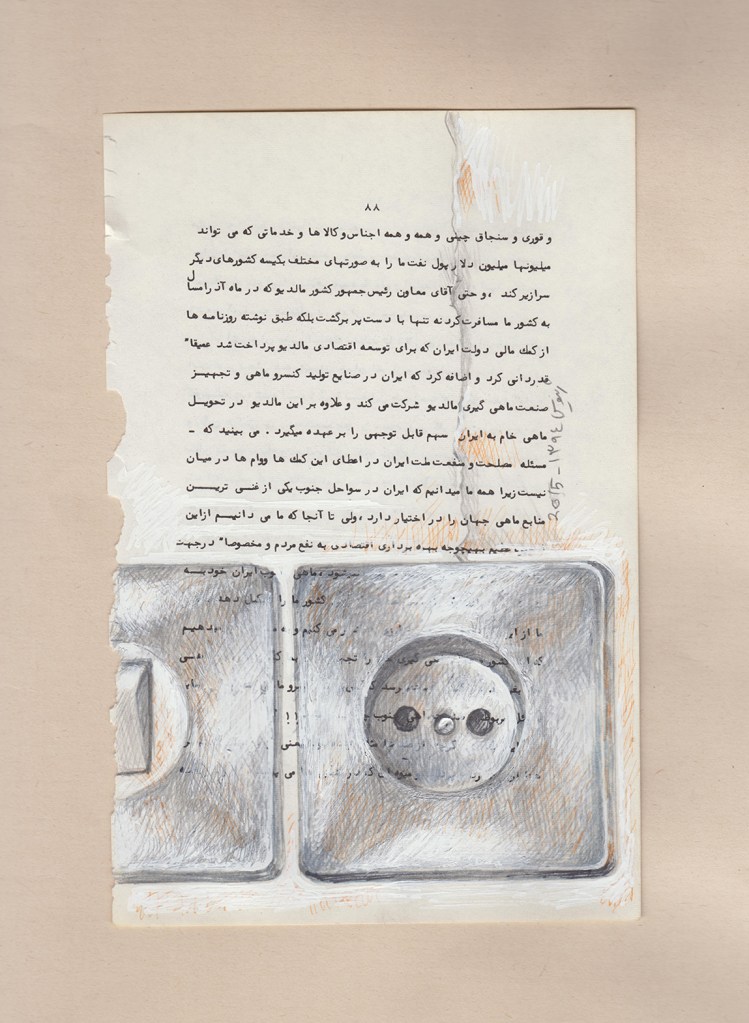 ۸۸
و قوری و سنجاق چینی و همه و همه اجناس و کالا ها و خدماتی که می تواند
میلیونها میلیون دلار پول نفت ما را به صورتهای مختلف بکیسه کشورهای دیگر
سرازیر کند ، و حتی آقای معاون رئیس جمهور کشور مالدیو که در ماه آذر امسال
به کشور ما مسافرت کرد نه تنها با دست پر برگشت بلکه طبق نوشته روزنامه ها
از کمک مالی دولت ایران که برای توسعه اقتصادی مالدیو پرداخت شد عمیقا"
قدردانی کرد و اضافه کرد که ایران در صنایع تولید کنسرو ماهی و تجهیز
صنعت ماهی گیری مالدیو شرکت می کند و علاوه بر این مالدیو در تحویل
ماهی خام به ایران سهم قابل توجهی را بر عهده میگیرد . می بینید که -
مسئله مصلحت و منفعت ملت ایران در اعطای این کمک ها و وام ها در میان
نیست زیرا همه ما میدانیم که ایران در سواحل جنوب یکی از غنی ترین
منابع ماهی جهان را در اختیار دارد ، ولی تا آنجا که ما می دانیم از این
بهیچوجه بهره برداری اقتصادی به نفع مردم و مخصوصا" در جهت
ماهی جنوب ایران خود به
کشور ما را
ما از
می کنیم و
کشور
را
جنوب
یعنی
که در
2015 - ۱۳۹۴